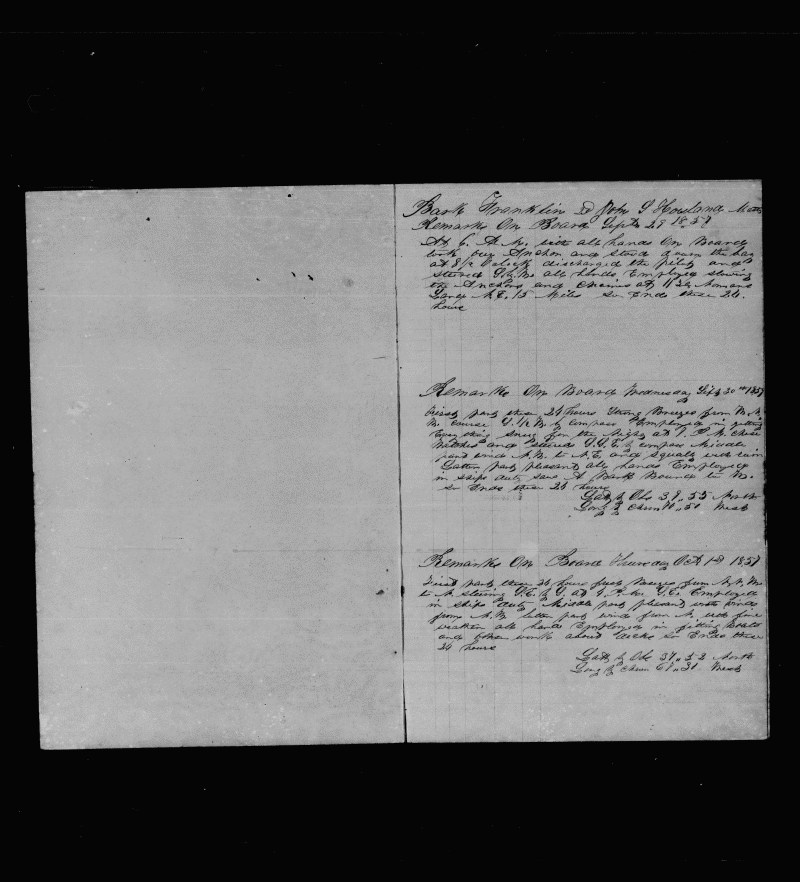 Bark Franklin of John S Howland Mattr
Remarks On Board Sept 29 1857
At 6. A. M. with all hands On Board
took our Anchor and stood down the bay
at 8 1/2 Oclock discharged the pilot and
steered all hands Employed stowing
the Anchors and Chains at Nomans
Land N.E. 15 Miles So Ends these 24.
hours
Remarks On Board Wednesday Sept 30th 1857
first part these 24 hours Strong Breezes from N. N.
W. Course by compass Employed in getting
Every thing snug for the Night at P. M.
watches and steered S.S.E. by compass Middle
part wind N.W. to N.E. and squally with rain
Latter part pleasant all hands Employed
in ships duty saw A Bark Bound to W.
So Ends these 24 hours
Latt by Obs 39,,55 North
Long by Chron 50 West
Remarks On Board Thursday Oct 1st 1857
First part these 24 hours fresh Breezes from N. N. W.
to N Steering S.E. by S. at P. M. S.E. Employed
in ships duty Middle part pleasant with winds
from N.W. latter part wind from N with fine
weather all hands Employed in fitting Boats
and Other work about decks So Ends these
24 hours
Latt by Obs 37,,52 North
Long by Chron 30 West